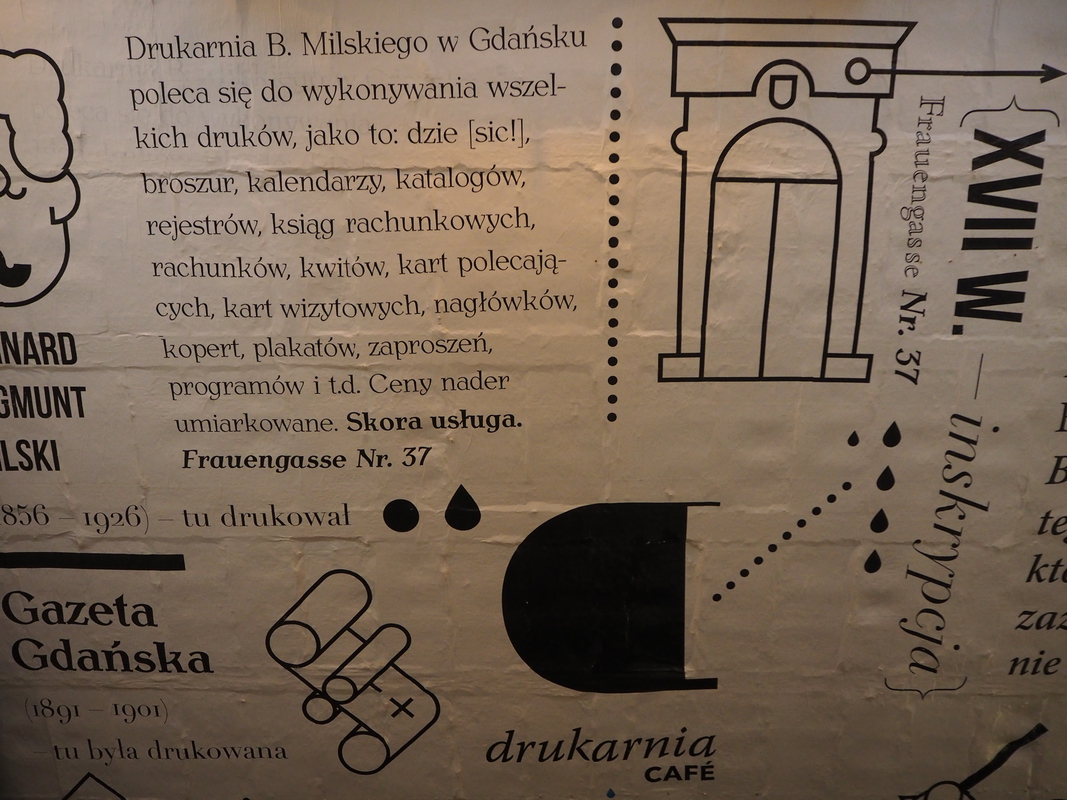 Drukarnia B. Milskiego w Gdańsku
poleca się do wykonywania wszel-
kich druków, jako to: dzie [sic!],
broszur, kalendarzy, katalogów,
rejestrów, ksiąg rachunkowych,
rachunków, kwitów, kart polecają-
cych, kart wizytowych, nagłówków,
kopert, plakatów, zaproszeń,
programów i t.d. Ceny nader
umiarkowane. Skora usługa.
Frauengasse Nr. 37
NARD
GMUNT
LSKI
856 – 1926) – tu drukował
Gazeta
Gdańska
(1891 – 1901)
– tu była drukowana
drukarnia
CAFÉ
Frauengasse Nr. 37
{XVII W. — inskrypcja}
B
te
kto
zaz
nie